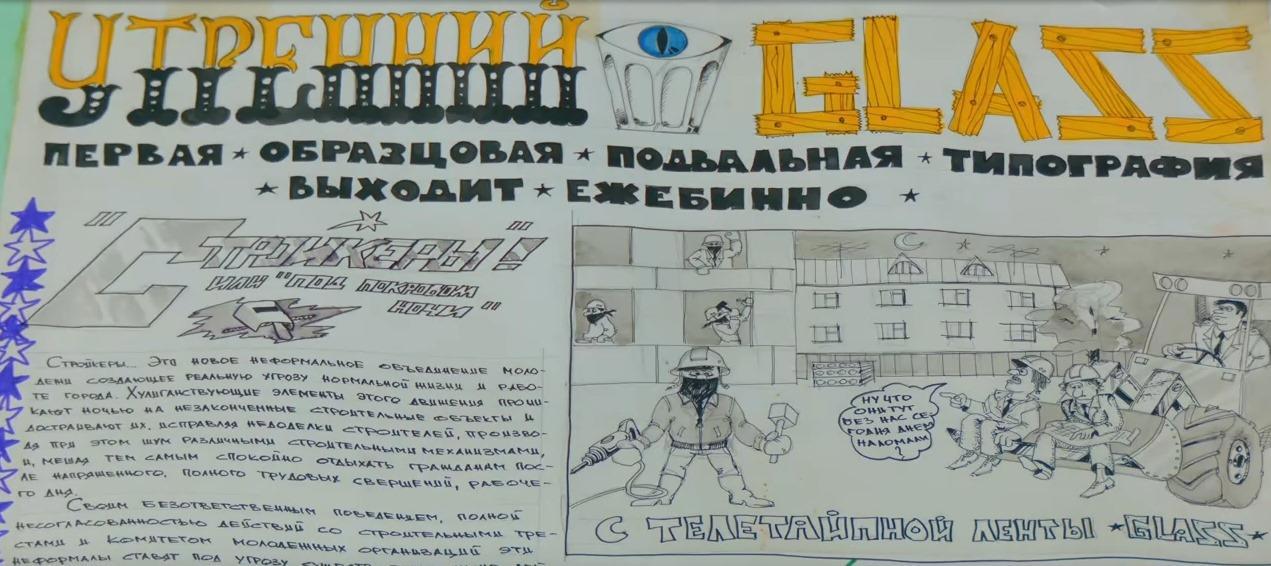 УТРЕННИЙ GLASS
ПЕРВАЯ ★ ОБРАЗЦОВАЯ ★ ПОДВАЛЬНАЯ ★ ТИПОГРАФИЯ
★ ВЫХОДИТ ★ ЕЖЕБИННО ★
"СТРОЙКЕРЫ"!
ИЛИ "ПОД ПОКРОВОМ
НОЧИ"
СТРОЙКЕРЫ... ЭТО НОВОЕ НЕФОРМАЛЬНОЕ ОБЪЕДИНЕНИЕ МОЛО-
ДЕЖИ СОЗДАЮЩЕЕ РЕАЛЬНУЮ УГРОЗУ НОРМАЛЬНОЙ ЖИЗНИ И РАБО-
ТЕ ГОРОДА. ХУЛИГАНСТВУЮЩИЕ ЭЛЕМЕНТЫ ЭТОГО ДВИЖЕНИЯ ПРОНИ-
КАЮТ НОЧЬЮ НА НЕЗАКОНЧЕННЫЕ СТРОИТЕЛЬНЫЕ ОБЪЕКТЫ И
ДОСТРАИВАЮТ ИХ, ИСПРАВЛЯЯ НЕДОДЕЛКИ СТРОИТЕЛЕЙ, ПРОИЗВО-
ДЯ ПРИ ЭТОМ ШУМ РАЗЛИЧНЫМИ СТРОИТЕЛЬНЫМИ МЕХАНИЗМАМИ,
И, МЕШАЯ ТЕМ САМЫМ СПОКОЙНО ОТДЫХАТЬ ГРАЖДАНАМ ПОС-
ЛЕ НАПРЯЖЕННОГО, ПОЛНОГО ТРУДОВЫХ СВЕРШЕНИЙ, РАБОЧЕ-
ГО ДНЯ.
СВОИМ БЕЗОТВЕТСТВЕННЫМ ПОВЕДЕНИЕМ, ПОЛНОЙ
НЕСОГЛАСОВАННОСТЬЮ ДЕЙСТВИЙ СО СТРОИТЕЛЬНЫМИ ТРЕ-
СТАМИ И КОМИТЕТОМ МОЛОДЕЖНЫХ ОРГАНИЗАЦИЙ ЭТИ
НЕФОРМАЛЫ СТАВЯТ ПОД УГРОЗУ
НУ ЧТО
ОНИ ТУТ
БЕЗ НАС СЕ-
ГОДНЯ ДНЕМ
НАЛОМАЛИ
?
С ТЕЛЕТАЙПНОЙ ЛЕНТЫ ★GLASS★